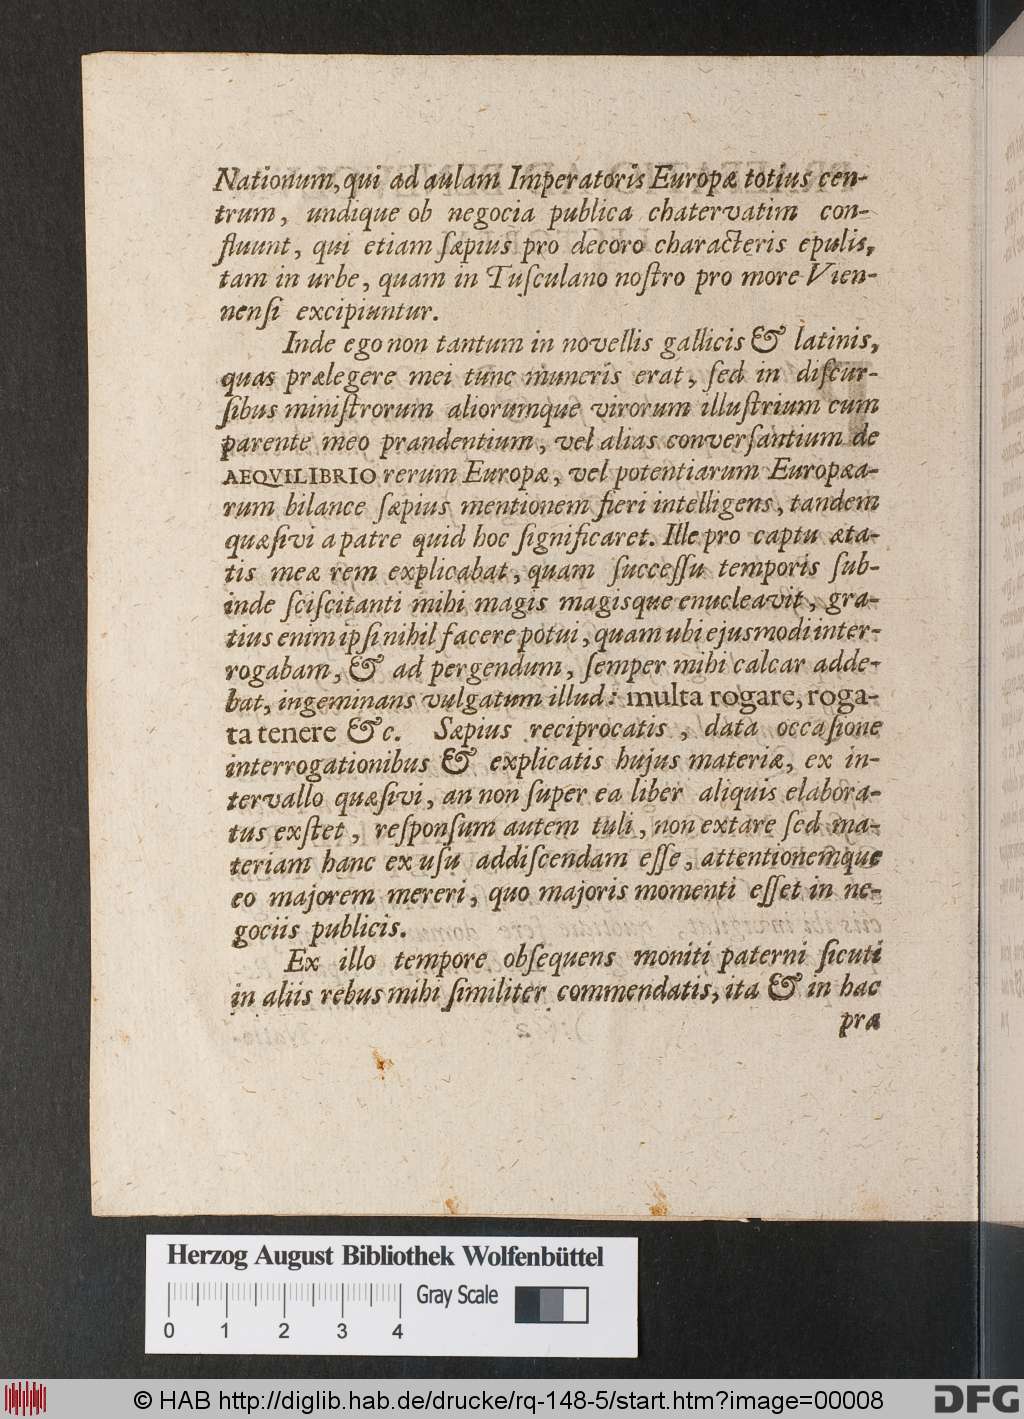 Nationum, qui ad aulam Imperatoris Europæ totius cen-
trum, undique ob negocia publica chatervatim con-
fluunt, qui etiam ſæpius pro decoro characteris epulis,
tam in urbe, quam in Tuſculano noſtro pro more Vien-
nenſi excipiuntur.
Inde ego non tantum in novellis gallicis & latinis,
quas prælegere mei tunc muneris erat, ſed in diſcur-
ſibus miniſtrorum aliorumque virorum illuſtrium cum
parente meo prandentium, vel alias converſantium de
AEQVILIBRIO rerum Europæ, vel potentiarum Europæa-
rum bilance ſæpius mentionem fieri intelligens, tandem
quæſivi a patre quid hoc ſignificaret. Ille pro captu æta-
tis meæ rem explicabat, quam ſucceſſu temporis ſub-
inde ſciſcitanti mihi magis magisque enucleavit, gra-
tius enim ipſi nihil facere potui, quam ubi ejusmodi inter-
rogabam, & ad pergendum, ſemper mihi calcar adde-
bat, ingeminans vulgatum illud: multa rogare, roga-
ta tenere &c. Sæpius reciprocatis, data occaſione
interrogationibus & explicatis hujus materiæ, ex in-
tervallo quæſivi, an non ſuper ea liber aliquis elabora-
tus exſtet, reſponſum autem tuli, non extare ſed ma-
teriam hanc ex uſu addiſcendam eſſe, attentionemque
eo majorem mereri, quo majoris momenti eſſet in ne-
gociis publicis.
Ex illo tempore obſequens moniti paterni ſicuti
in aliis rebus mihi ſimiliter commendatis, ita & in hac
præ
Herzog August Bibliothek Wolfenbüttel
Gray Scale
0 1 2 3 4
© HAB http://diglib.hab.de/drucke/rq-148-5/start.htm?image=00008
DFG